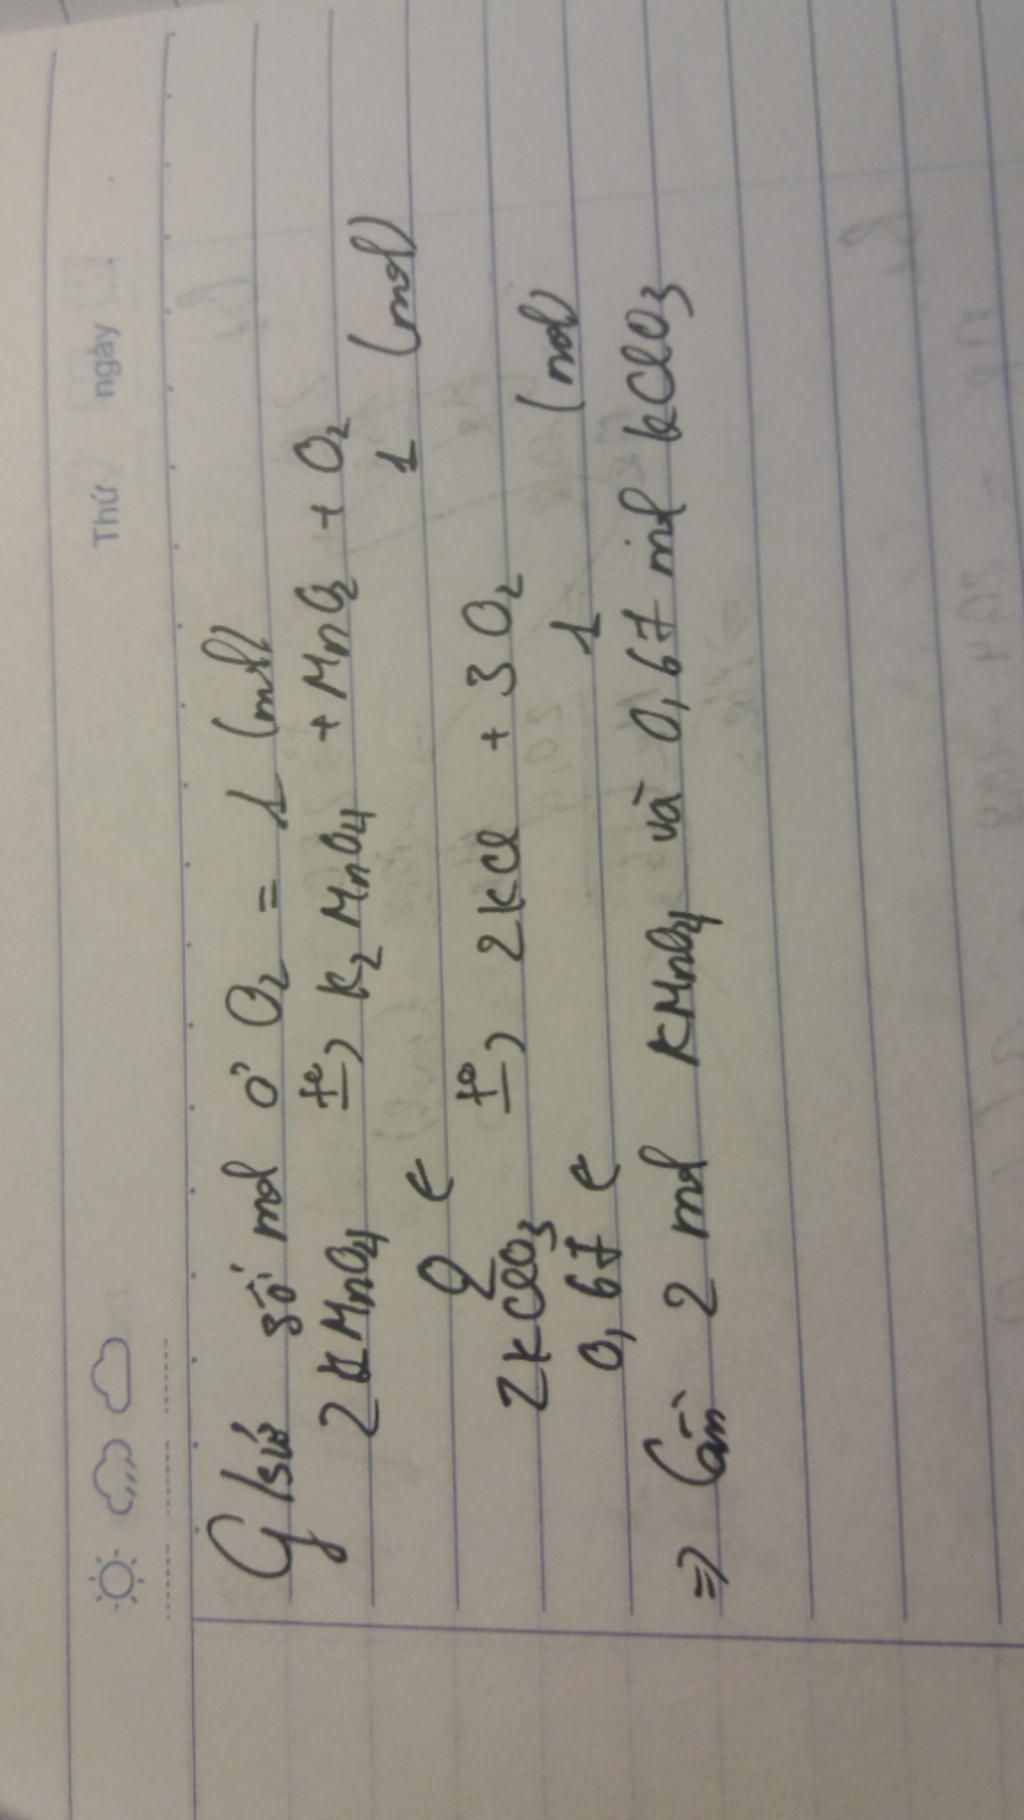 Thứ ngày
G/sử số mol ở O₂ = 1 (mol)
2KMnO₄ t°→ K₂MnO₄ + MnO₂ + O₂
2 ← 1 (mol)
2KClO₃ t°→ 2KCl + 3O₂
0,67 ← 1 (mol)
=> Cần 2 mol KMnO₄ và 0,67 mol KClO₃